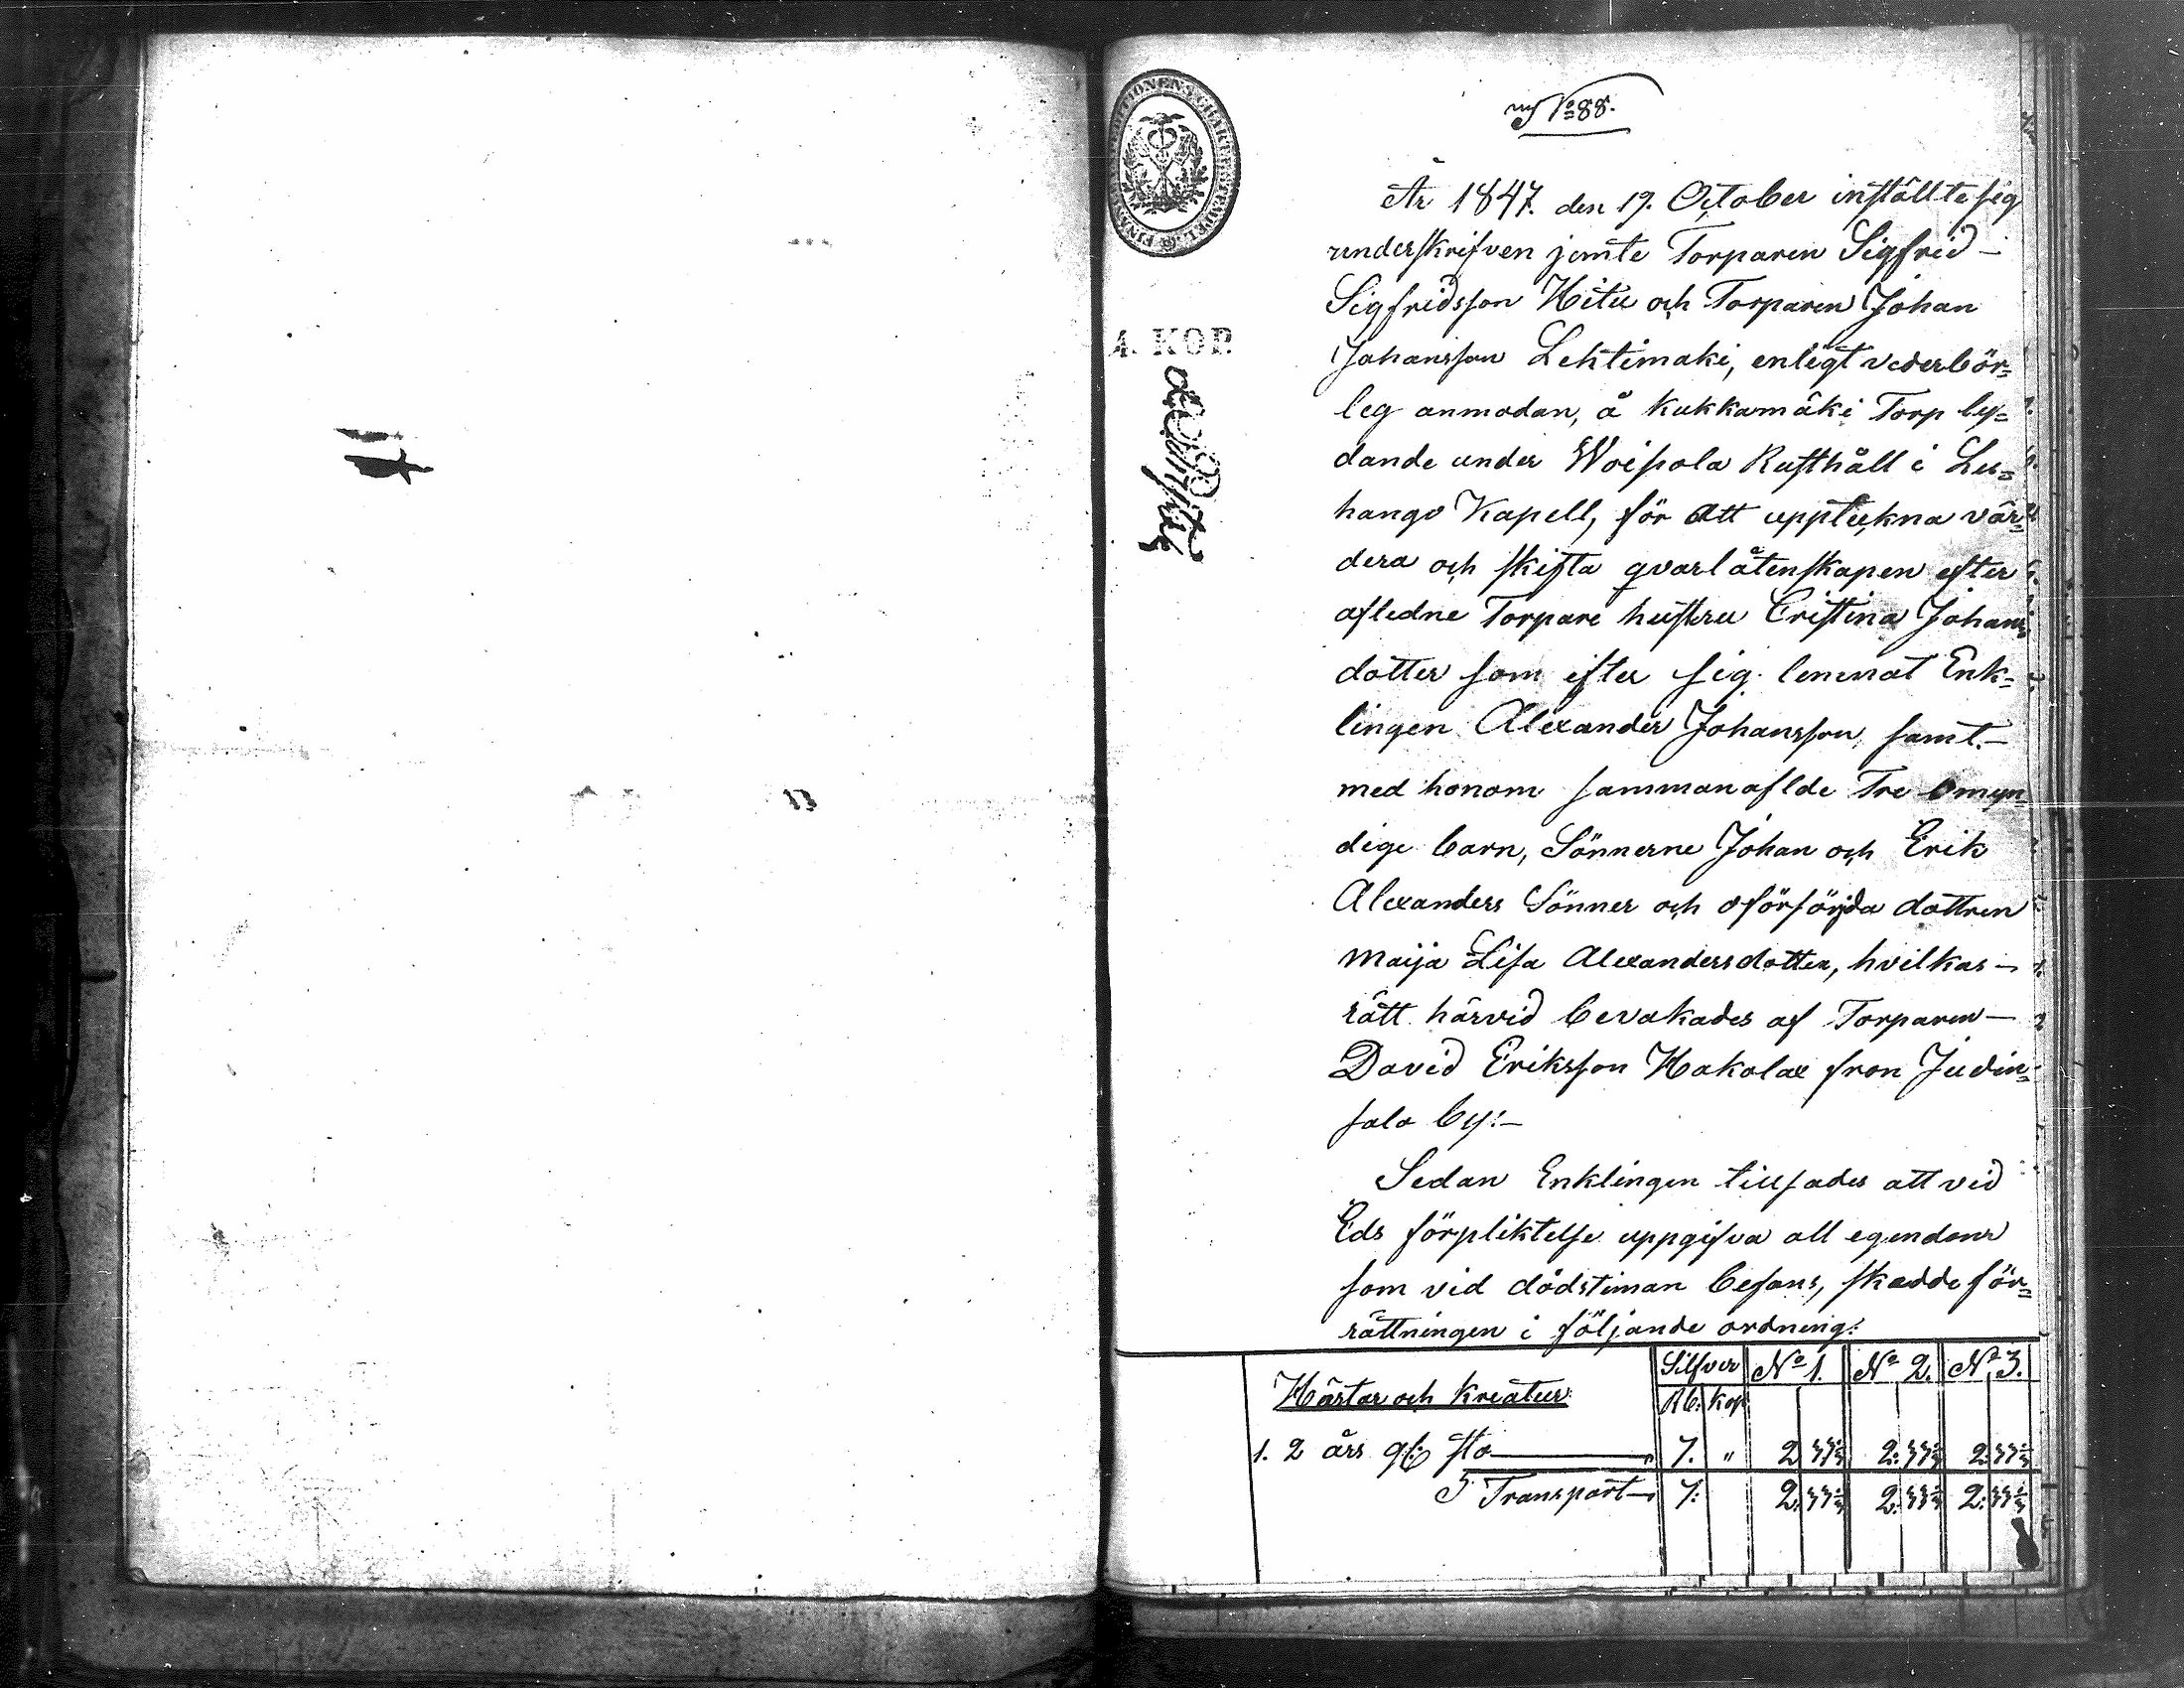 No 88.
År 1847. den 19. October inställte sig
underskrifven jemte Torparen Sigfrid –
Sigfridsson Hitu och Torparen Johan
Johansson Lehtimaki, enligt vederbör=
leg anmodan, å Kukkamäki Torp ly=
dande under Woipola Rusthåll i Lu=
hango Kapell, för att upptekna vär=
dera och skifta qvarlåtenskapen efter
afledne Torpare hustru Cristina Johans
dotter som efter sig lemnat Enk=
lingen Alexander Johansson samt. –
med honom sammanaflde Tre omyn=
dige barn, Sönnerne Johan och Erik
Alexanders Sönner och oförsörjda dottren
Maija Lisa Alexandersdotter, hvilkas –
rätt härvid bevakades af Torparen –
David Eriksson Hakolax fron Judin=
salo by: –
Sedan Enklingen tillsades att vid
Eds förpliktelse uppgifva all egendom
som vid dödstiman befans, skedde för=
rättningen i följande ordning:
Silfver No 1. No 2. No 3.
Hästar och Kreatur Rb: kop
1. 2 års gl: sto 7. " 2 33⅓ 2: 33⅓ 2: 33⅓
Transport 7: 2: 33⅓ 2: 33⅓ 2: 33⅓
4. KOP.